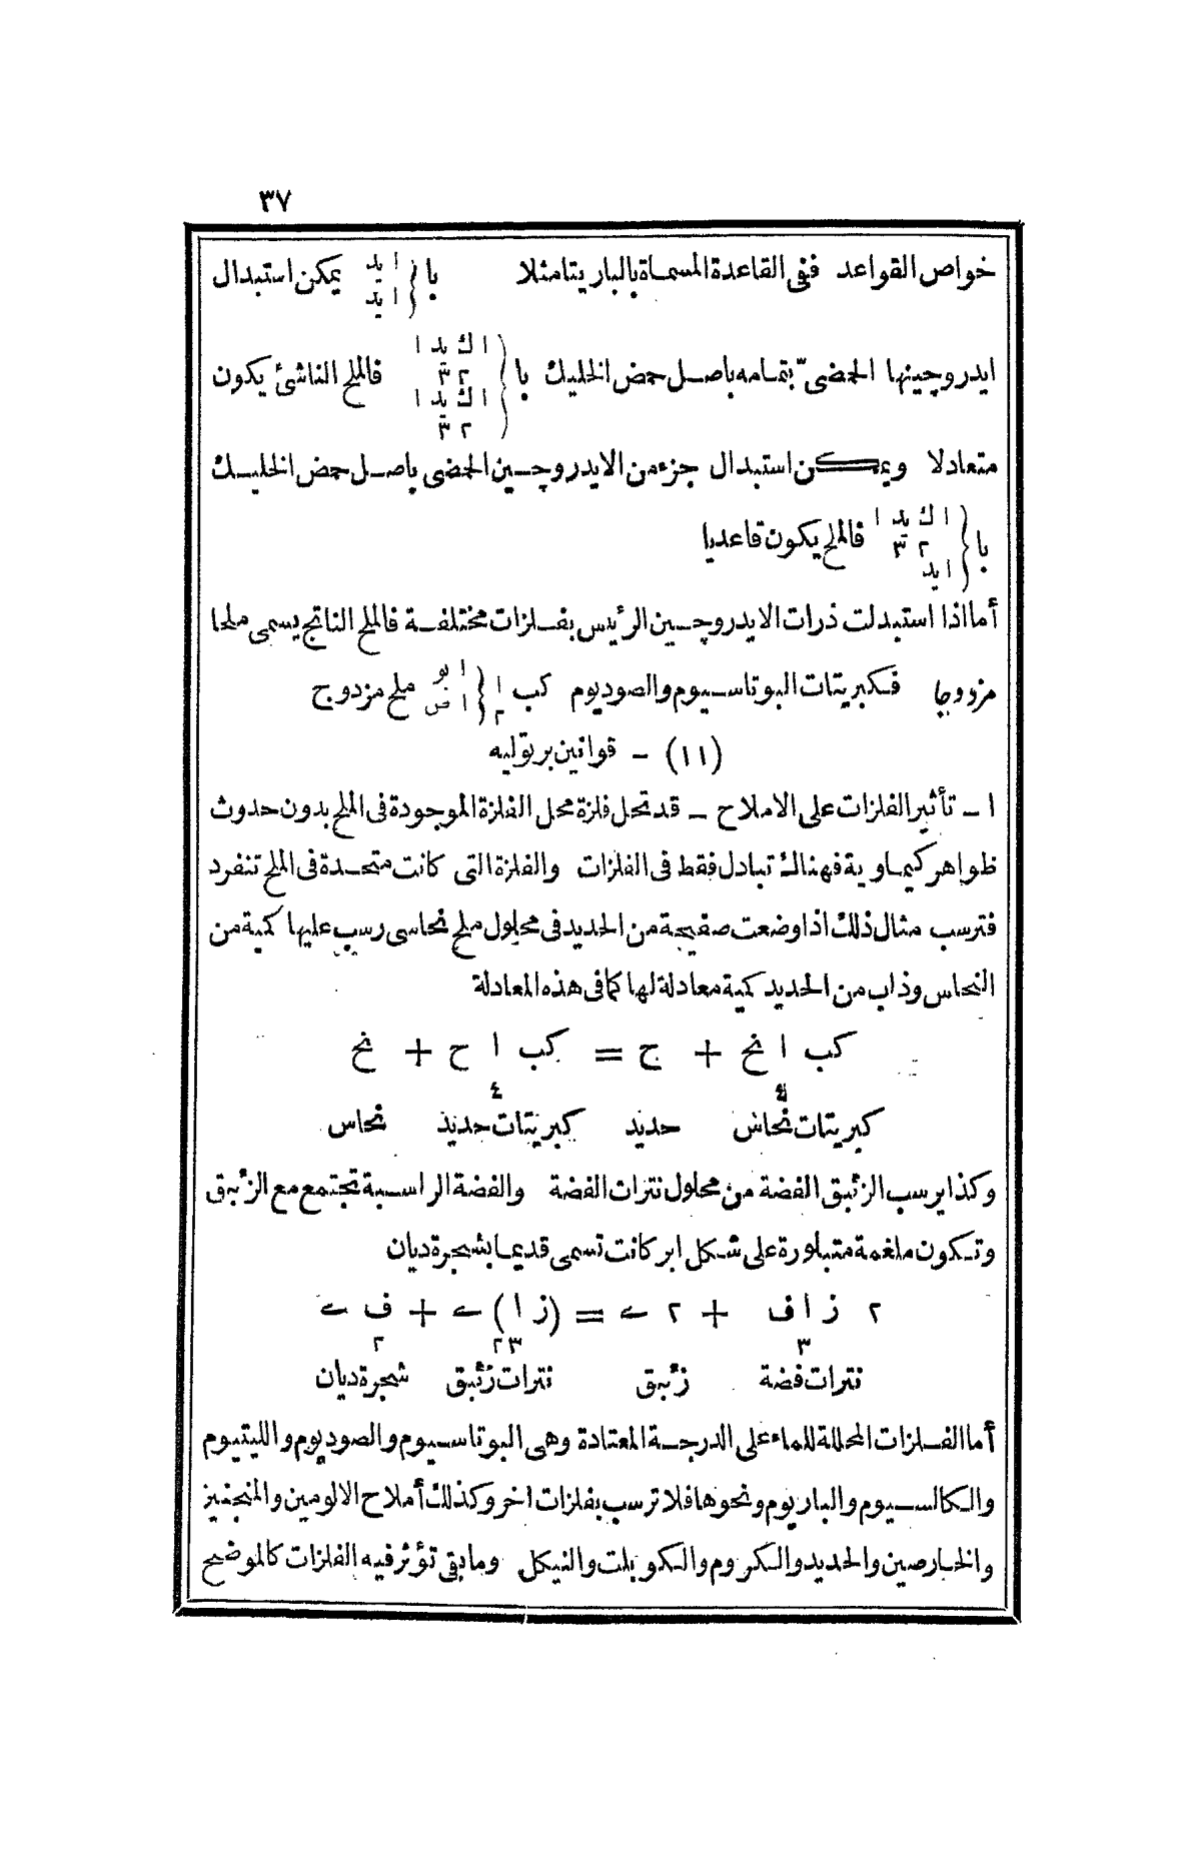 ٣٧
خواص القواعد ففى القاعدة المسماة بالباريتا مثلا با { ا يد يمكن استبدال
ا يد
ايدروچينها الحمضىّ بتمامه باصل حمض الخليك با { ا ك يد ا فالملح الناشئ يكون
٢ ٣
ا ك يد ا
٢ ٣
متعادلا ويمكن استبدال جزء من الايدروچين الحمضى باصل حمض الخليك
با { ا ك يد ا فالملح يكون قاعديا
٢ ٣
ا يد
أما اذا استبدلت ذرات الايدروچين الرئيس بفلزات مختلفة فالملح الناتج يسمى ملحا
مزدوجا فكبريتات البوتاسيوم والصوديوم كب ا { ا بو ملح مزدوج
٢ ا ص
(١١) ـ قوانين برتوليه
١ ـ تأثير الفلزات على الاملاح ـ قد تحل فلزة محل الفلزة الموجودة فى الملح بدون حدوث
ظواهر كيماوية فهناك تبادل فقط فى الفلزات والفلزة التى كانت متحدة فى الملح تنفرد
فترسب مثال ذلك اذا وضعت صفيحة من الحديد فى محلول ملح نحاسى رسب عليها كمية من
النحاس وذاب من الحديد كمية معادلة لها كما فى هذه المعادلة
كب ا نح + ح = كب ا ح + نح
٤ ٤
كبريتات نحاس حديد كبريتات حديد نحاس
وكذا يرسب الزئبق الفضة من محلول نترات الفضة والفضة الراسبة تجتمع مع الزئبق
وتكون ملغمة متبلورة على شكل ابر كانت تسمى قديما بشجرة ديان
٢ ز ا ف + ٢ ى = (ز ا) ى + ف ى
٣ ٣ ٢ ٢
نترات فضة زئبق نترات زئبق شجرة ديان
أما الفلزات المحللة للماء على الدرجة المعتادة وهى البوتاسيوم والصوديوم والليتيوم
والكالسيوم والباريوم ونحوها فلا ترسب بفلزات اخر وكذلك أملاح الالومين والمنجنيز
والخارصين والحديد والكروم والكوبلت والنيكل وما بقى تؤثر فيه الفلزات كالموضح